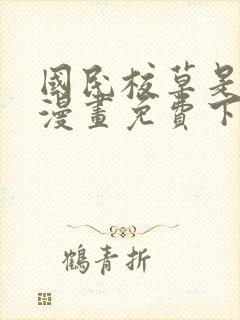 國民校草是
漫畫免費下
鶴青折